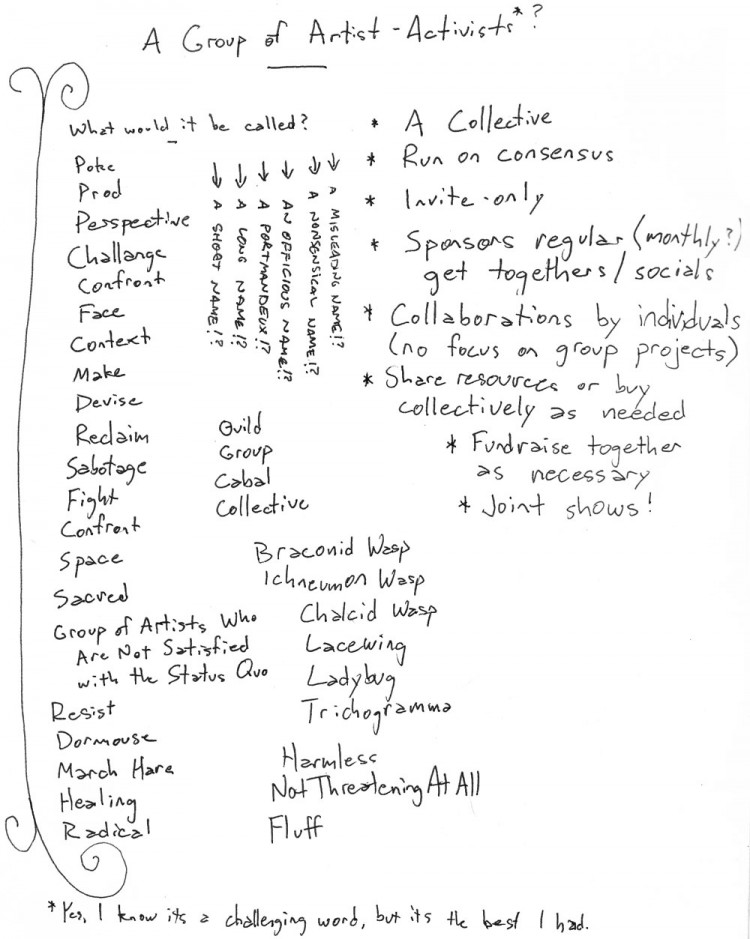 A Group of Artist-Activists*?
What would it be called?
Poke
Prod
Perspective
Challange
Confront
Face
Context
Make
Devise
Reclaim
Sabotage
Fight
Confront
Space
Sacred
Group of Artists Who
Are Not Satisfied
with the Status Quo
Resist
Dormouse
March Hare
Healing
Radical
↓ A SHORT NAME!?
↓ A LONG NAME!?
↓ A PORTMANDEUX!?
↓ AN OFFICIOUS NAME!?
↓ A NONSENSICAL NAME!?
↓ A MISLEADING NAME!?
Guild
Group
Cabal
Collective
Braconid Wasp
Ichneumon Wasp
Chalcid Wasp
Lacewing
Ladybug
Trichogramma
Harmless
Not Threatening At All
Fluff
* A Collective
* Run on consensus
* Invite-only
* Sponsors regular (monthly?)
get togethers/socials
* Collaborations by individuals
(no focus on group projects)
* Share resources or buy
collectively as needed
* Fundraise together
as necessary
* Joint shows!
*Yes, I know its a challenging word, but its the best I had.